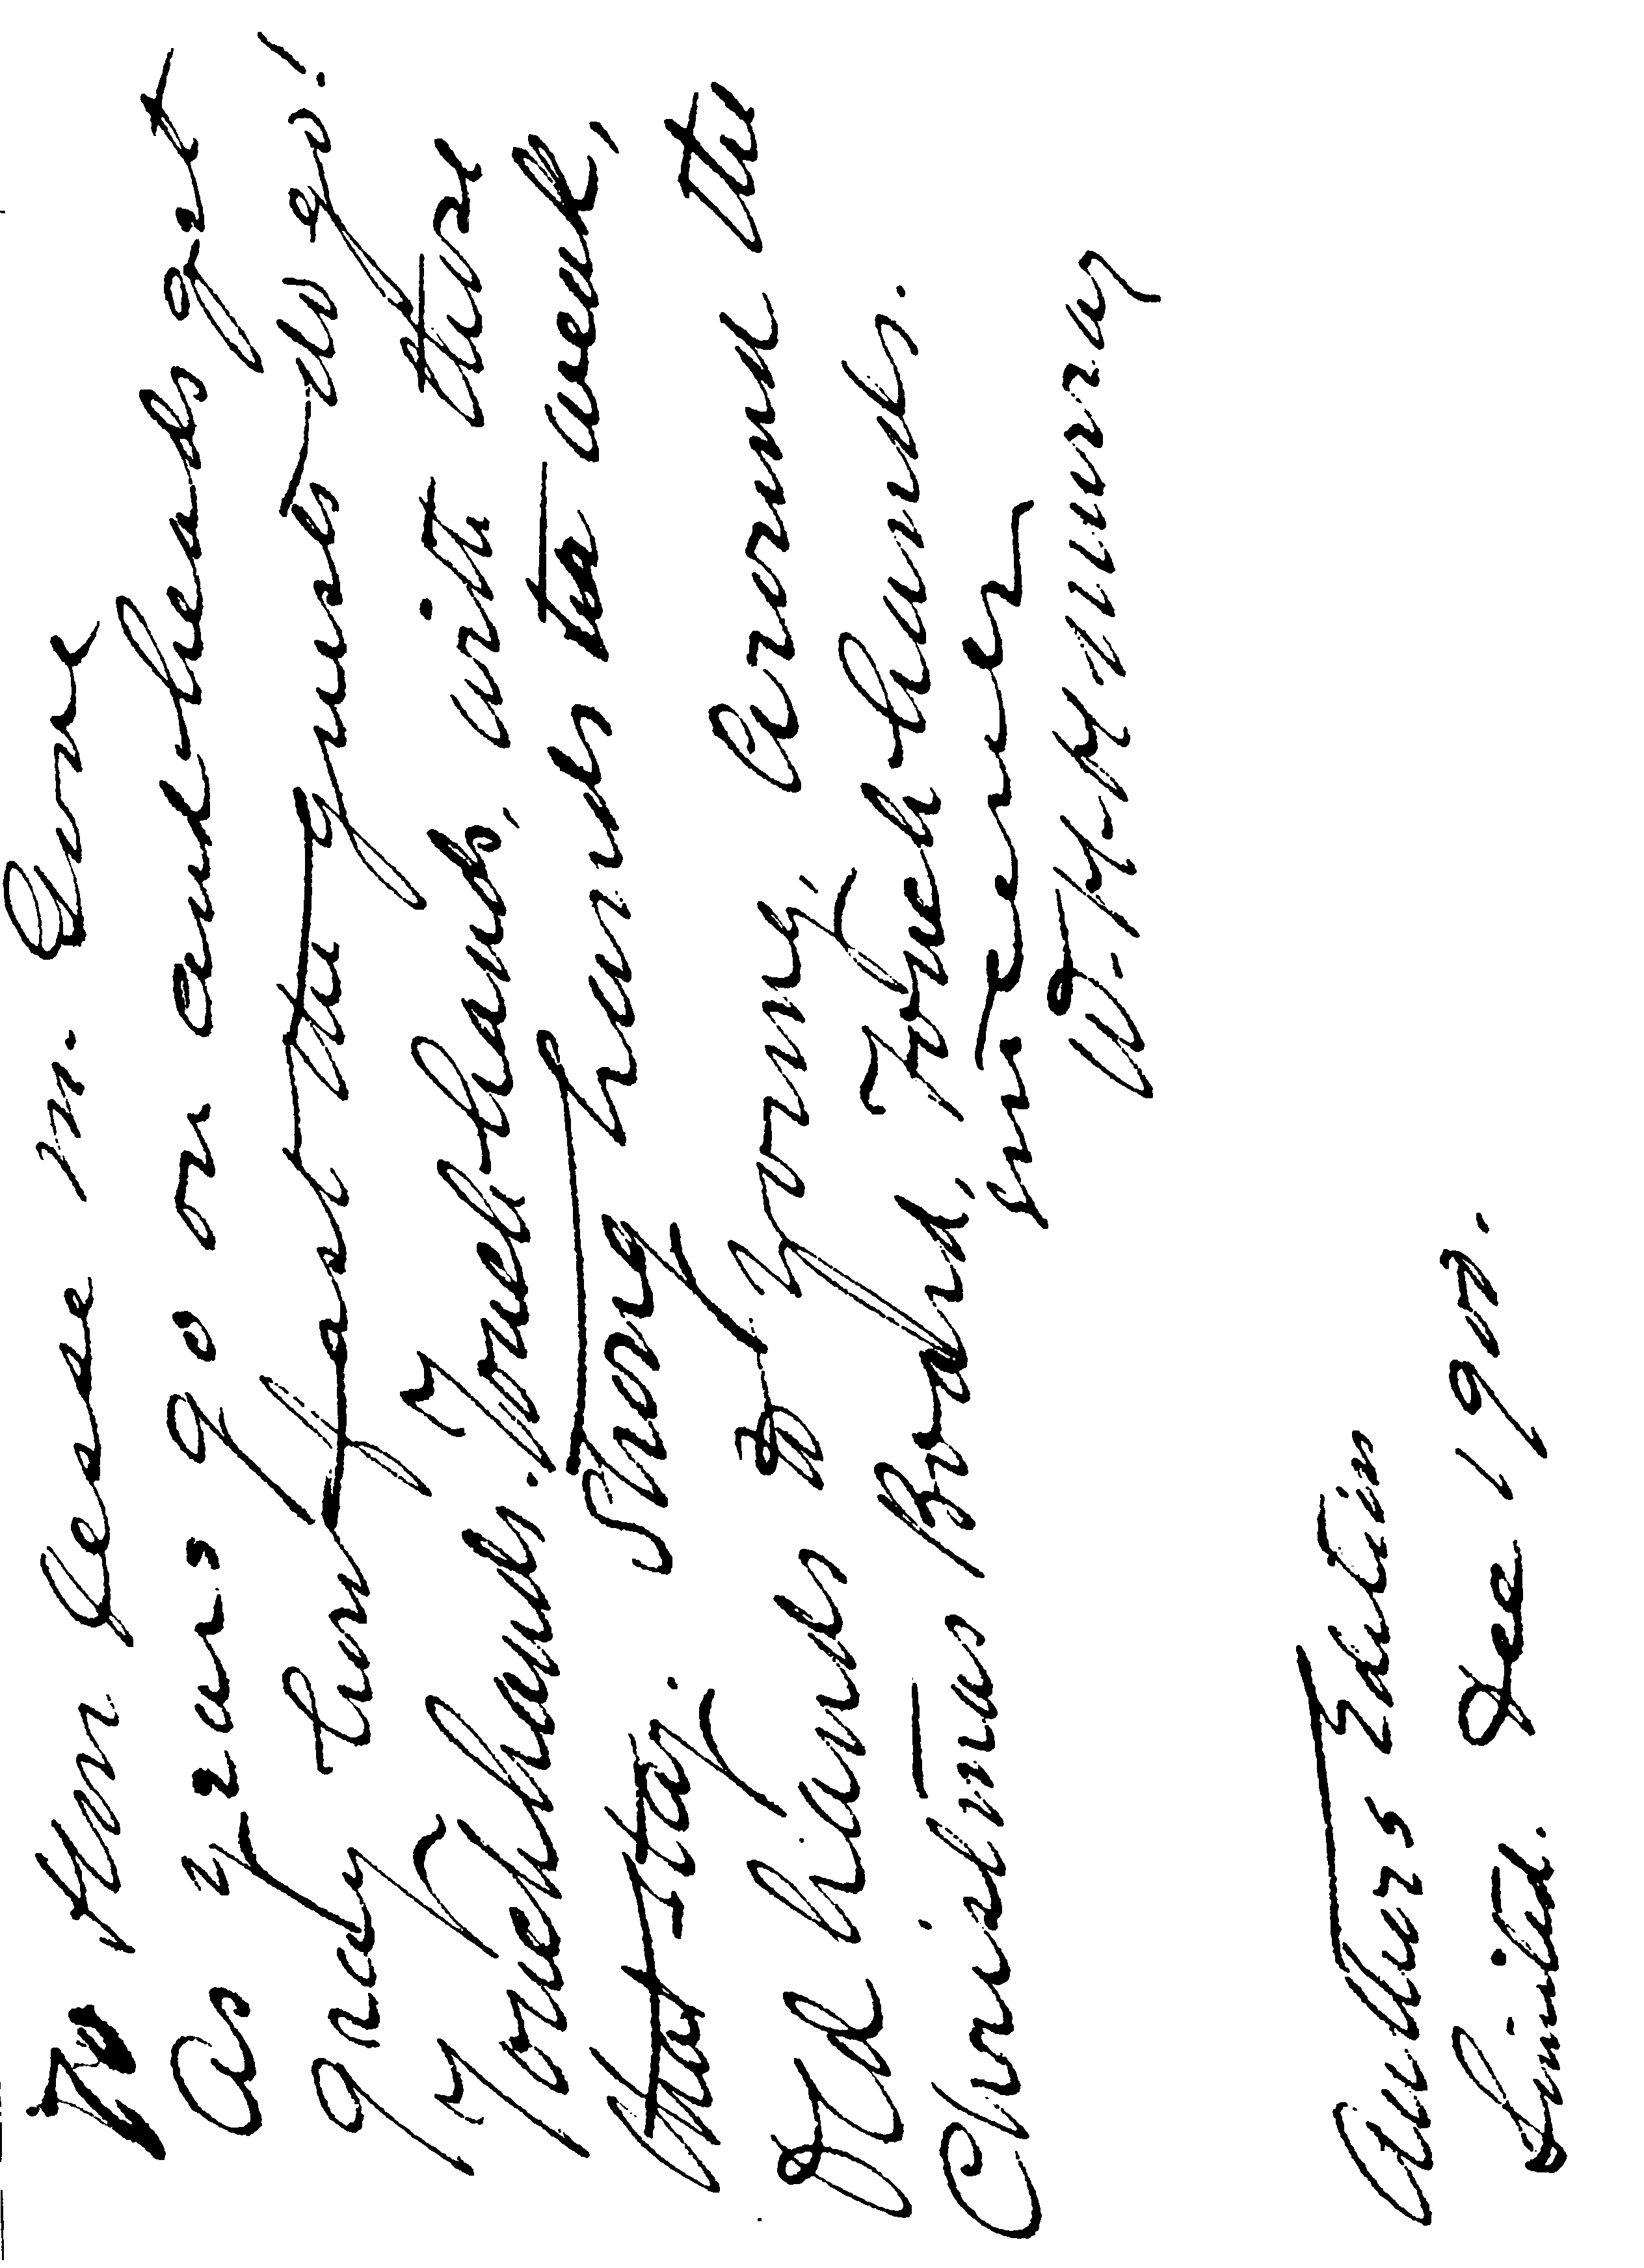 To Hon Jesse M. Gove
As years go on and heads get
gray how fast the guests do go!
Touch hands. Touch hands, with those
that stay. Strong hands to weak,
Old hands to young, around the
Christmas Board, Touch hands.
sincerely
W. H. H. Murray
Authors Edition
Limited. Dec 1900.